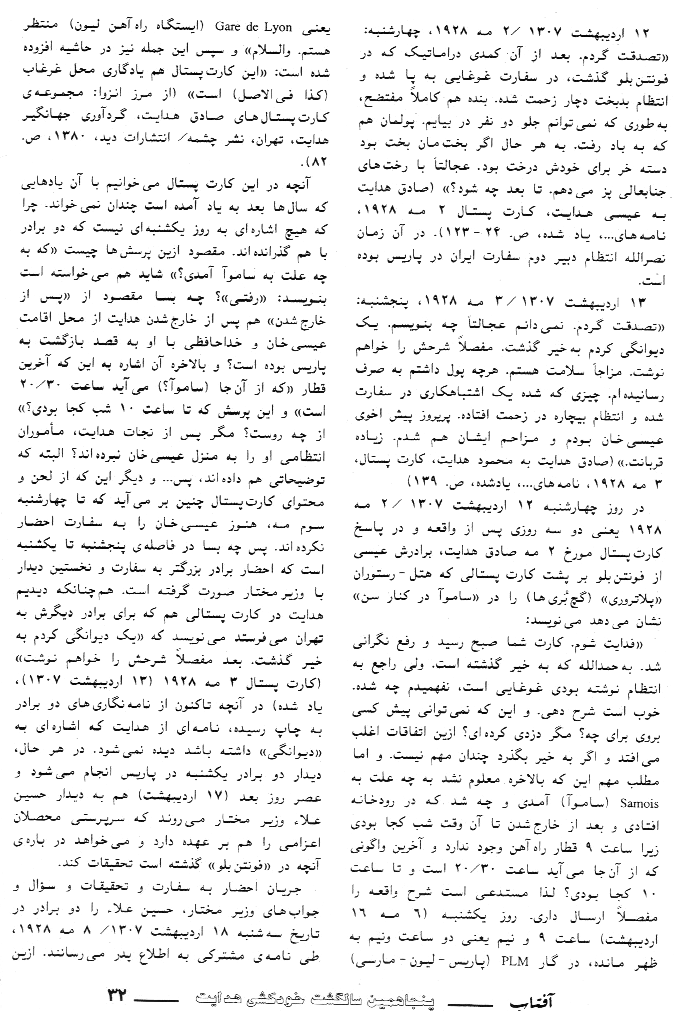 ۱۲ اردیبهشت ۱۳۰۷ /۲ مه ۱۹۲۸، چهارشنبه:
«تصدقت گردم. بعد از آن کمدی دراماتیک که در
فونتن‌بلو گذشت، در سفارت غوغایی به پا شده و
انتظام بدبخت دچار زحمت شده. بنده هم کاملاً مفتضح،
به طوری که نمی‌توانم جلو دو نفر در بیایم. پولمان هم
که به باد رفت. به هر حال اگر بخت‌مان بخت بود
دسته خر برای خودش درخت بود. عجالتاً با رخت‌های
جنابعالی پز می‌دهم. تا بعد چه شود؟» (صادق هدایت
به عیسی هدایت، کارت پستال ۲ مه ۱۹۲۸،
نامه‌های...، یاد شده، ص. ۲۴-۱۲۳). در آن زمان
نصرالله انتظام دبیر دوم سفارت ایران در پاریس بوده
است.
۱۳ اردیبهشت ۱۳۰۷ /۳ مه ۱۹۲۸، پنجشنبه:
«تصدقت گردم. نمی‌دانم عجالتاً چه بنویسم. یک
دیوانگی کردم به خیر گذشت. مفصلاً شرحش را خواهم
نوشت. مزاجاً سلامت هستم. هرچه پول داشتم به صرف
رسانیده‌ام. چیزی که شده یک اشتباهکاری در سفارت
شده و انتظام بیچاره در زحمت افتاده. پریروز پیش اخوی
عیسی خان بودم و مزاحم ایشان هم شدم. زیاده
قربانت.» (صادق هدایت به محمود هدایت، کارت پستال،
۳ مه ۱۹۲۸، نامه‌های...، یادشده، ص. ۱۳۹)
در روز چهارشنبه ۱۲ اردیبهشت ۱۳۰۷ /۲ مه
۱۹۲۸ یعنی دو سه روزی پس از واقعه و در پاسخ
کارت پستال مورخ ۲ مه صادق هدایت، برادرش عیسی
از فونتن‌بلو بر پشت کارت پستالی که هتل-رستوران
«پلاتروری» (گچ‌بُری‌ها) را در «ساموآ در کنار سن»
نشان می‌دهد می‌نویسد:
«فدایت شوم. کارت شما صبح رسید و رفع نگرانی
شد. به حمدالله که به خیر گذشته است. ولی راجع به
انتظام نوشته بودی غوغایی است، نفهمیدم چه شده.
خوب است شرح دهی. و این که نمی‌توانی پیش کسی
بروی برای چه؟ مگر دزدی کرده‌ای؟ ازین اتفاقات اغلب
می‌افتد و اگر به خیر بگذرد چندان مهم نیست. و اما
مطلب مهم این که بالاخره معلوم نشد به چه علت به
Samois (ساموآ) آمدی و چه شد که در رودخانه
افتادی و بعد از خارج شدن تا آن وقت شب کجا بودی
زیرا ساعت ۹ قطار راه‌آهن وجود ندارد و آخرین واگونی
که از آن جا می‌آید ساعت ۲۰/۳۰ است و تا ساعت
۱۰ کجا بودی؟ لذا مستدعی است شرح واقعه را
مفصلاً ارسال داری. روز یکشنبه (۶ مه ۱۶
اردیبهشت) ساعت ۹ و نیم یعنی دو ساعت ونیم به
ظهر مانده، در گار PLM (پاریس-لیون-مارسی)
یعنی Gare de Lyon (ایستگاه راه‌آهن لیون) منتظر
هستم. والسلام» و سپس این جمله نیز در حاشیه افزوده
شده است: «این کارت‌پستال هم یادگاری محل غرغاب
(کذا فی‌الاصل) است» (از مرز انزوا: مجموعه‌ی
کارت‌پستال‌های صادق هدایت، گردآوری جهانگیر
هدایت، تهران، نشر چشمه/ انتشارات دید، ۱۳۸۰، ص.
۸۲).
آنچه در این کارت پستال می‌خوانیم با آن یادهایی
که سال‌ها بعد به یاد آمده است چندان نمی‌خواند. چرا
که هیچ اشاره‌ای به روز یکشنبه‌ای نیست که دو برادر
با هم گذرانده‌اند. مقصود ازین پرسش‌ها چیست «که به
چه علت به ساموآ آمدی؟» شاید هم می‌خواسته است
بنویسد: «رفتی»؟ چه بسا مقصود از «پس از
خارج شدن» هم پس از خارج شدن هدایت از محل اقامت
عیسی خان و خداحافظی با او به قصد بازگشت به
پاریس بوده است؟ و بالاخره آن اشاره به این که آخرین
قطار «که از آن جا (ساموآ؟) می‌آید ساعت ۲۰/۳۰
است» و این پرسش که تا ساعت ۱۰ شب کجا بودی؟»
از چه روست؟ مگر پس از نجات هدایت، مأموران
انتظامی او را به منزل عیسی خان نبرده‌اند؟ البته که
توضیحاتی هم داده‌اند، پس... و دیگر این که از لحن و
محتوای کارت‌پستال چنین بر می‌آید که تا چهارشنبه
سوم مه، هنوز عیسی خان را به سفارت احضار
نکرده‌اند. پس چه بسا در فاصله‌ی پنجشنبه تا یکشنبه
است که احضار برادر بزرگتر به سفارت و نخستین دیدار
با وزیر مختار صورت گرفته است. هم‌چنانکه دیدیم
هدایت در کارت پستالی هم که برای برادر دیگرش به
تهران می‌فرستد می‌نویسد که «یک دیوانگی کردم به
خیر گذشت. بعد مفصلاً شرحش را خواهم نوشت»
(کارت پستال ۳ مه ۱۹۲۸ (۱۳ اردیبهشت ۱۳۰۷)،
یاد شده) در آنچه تاکنون از نامه‌نگاری‌های دو برادر
به چاپ رسیده، نامه‌ای از هدایت که اشاره‌ای به
«دیوانگی» داشته باشد دیده نمی‌شود. در هر حال،
دیدار دو برادر یکشنبه در پاریس انجام می‌شود و
عصر روز بعد (۱۷ اردیبهشت) هم به دیدار حسین
علاء وزیر مختار می‌روند که سرپرستی محصلان
اعزامی را هم بر عهده دارد و می‌خواهد در باره‌ی
آنچه در «فونتن‌بلو» گذشته است تحقیقات کند.
جریان احضار به سفارت و تحقیقات و سؤال و
جواب‌های وزیر مختار، حسین علاء را دو برادر در
تاریخ سه‌شنبه ۱۸ اردیبهشت ۱۳۰۷/ ۸ مه ۱۹۲۸،
طی نامه‌ی مشترکی به اطلاع پدر می‌رسانند. ازین
آفتاب —— پنجاهمین سالگشت خودکشی هدایت —— ۳۲